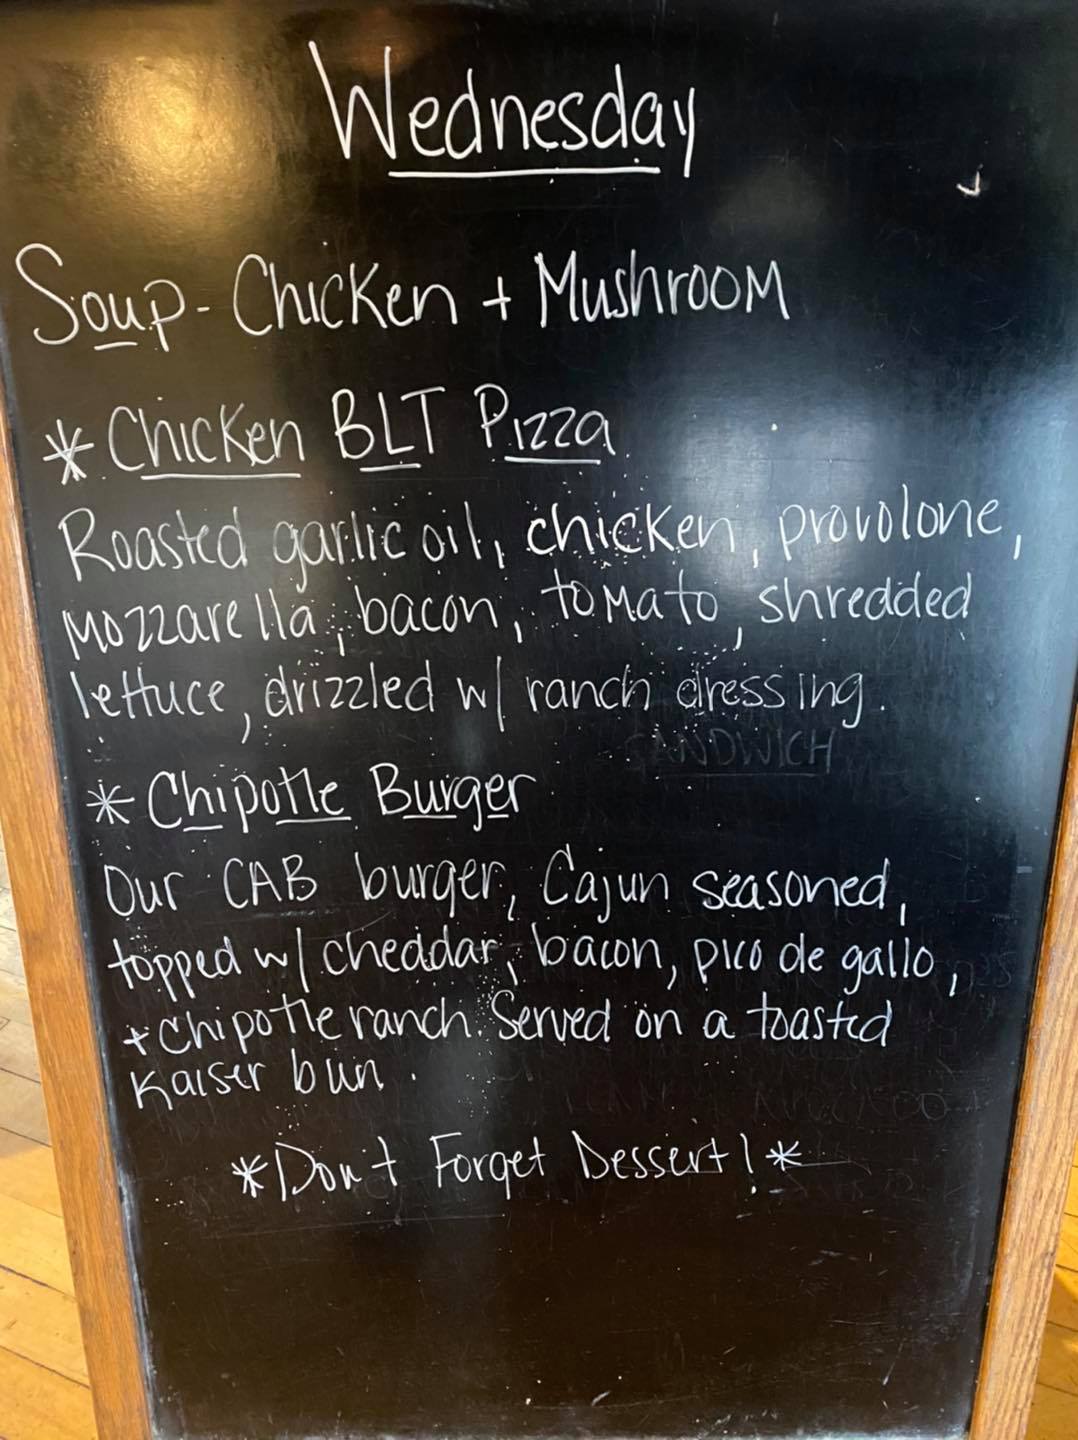 Wednesday
Soup - Chicken + Mushroom
* Chicken BLT Pizza
Roasted garlic oil, chicken, provolone,
mozzarella, bacon, tomato, shredded
lettuce, drizzled w/ ranch dressing.
SANDWICH
* Chipotle Burger
Our CAB burger, Cajun seasoned,
topped w/ cheddar, bacon, pico de gallo,
+ Chipotle ranch. Served on a toasted
Kaiser bun.
*Don't Forget Dessert!*